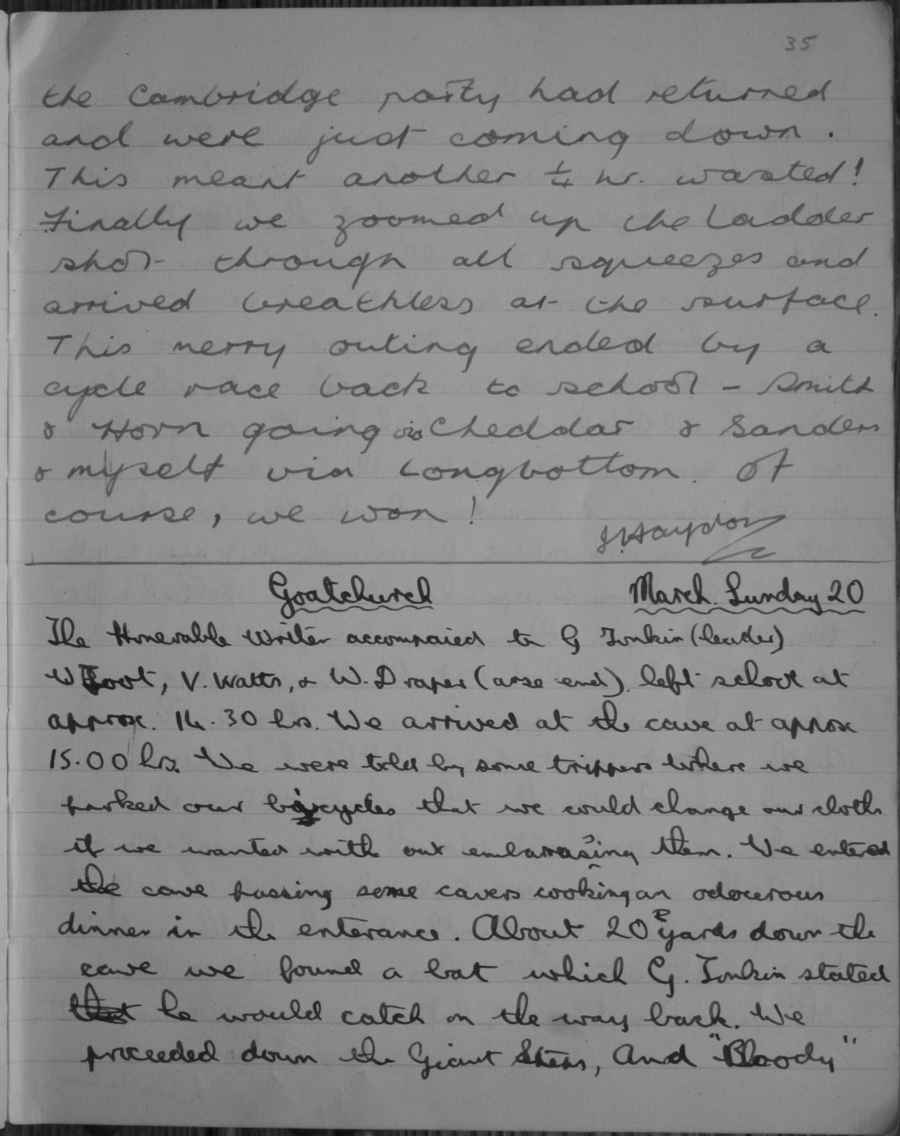 35
the Cambridge party had returned
and were just coming down.
This meant another 1/4 hr. wasted!
Finally we zoomed up the ladder
shot through all squeezes and
arrived breathless at the surface.
This merry outing ended by a
cycle race back to school - Smith
& Horn going via Cheddar & Sanders
& myself via Longbottom. Of
course, we won!
J. Haydon
Goatchurch March. Sunday 20
The Honerable writer accompaied to G Tonkin (leader)
W Foot, V. Watts, & W. Draper (arse end) left school at
approx. 14.30 hrs. We arrived at the cave at approx
15.00 hrs. We were told by some trippers where we
parked our bicycles that we could change our cloths
if we wanted with out embarrasing them. We entered
the cave passing some cavers cooking an odourous
dinner in the enterance. About 20 yards down the
cave we found a bat which G. Tonkin stated
he would catch on the way back. We
proceeded down the Giant Steps, And "Bloody"